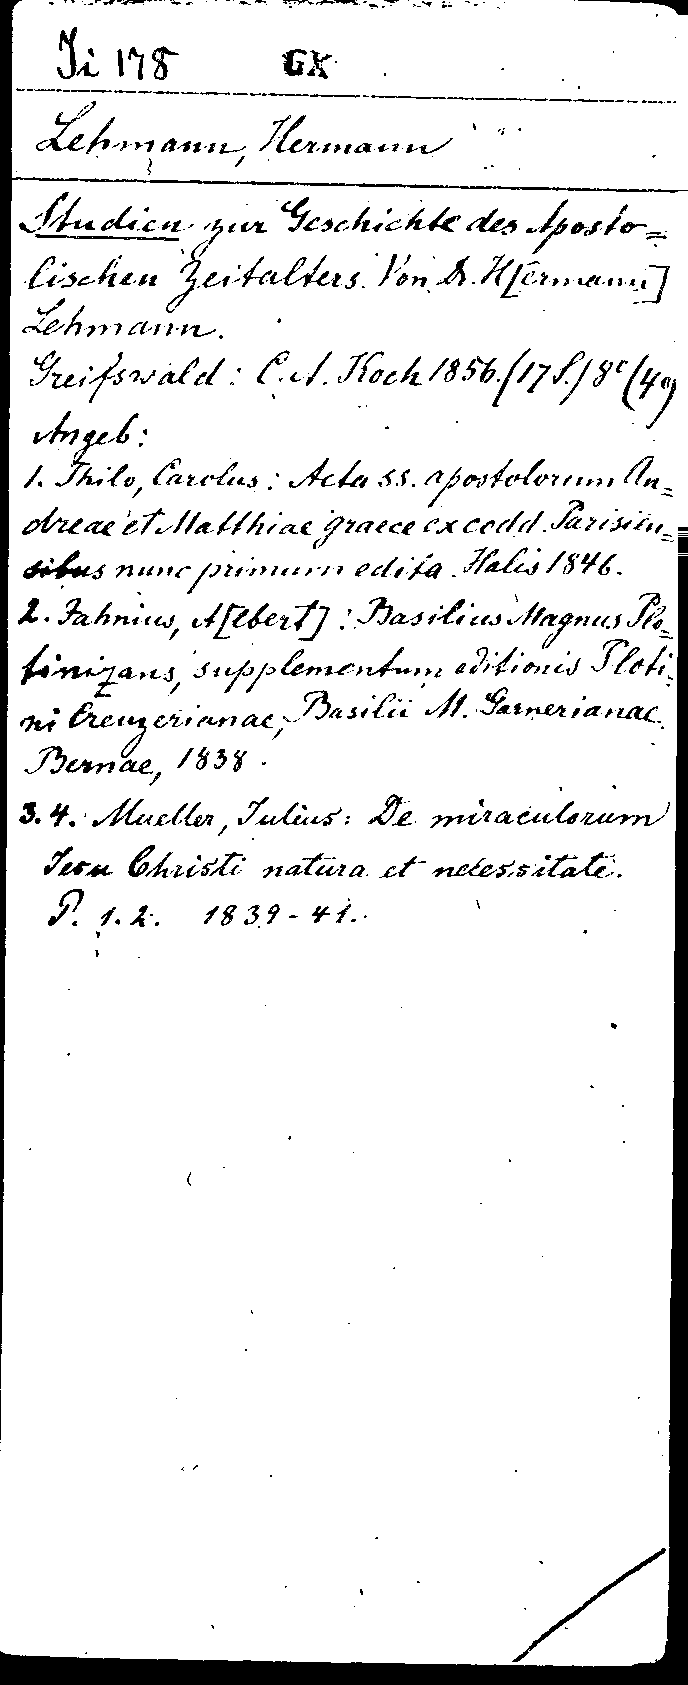 Ji 178 GX
Lehmann, Hermann
Studien zur Geschichte des Aposto=
lischen Zeitalters. Von Dr. H[ermann]
Lehmann.
Greifswald: C. A. Koch 1856. (17 S.) 8° (4°)
Angeb:
1. Thilo, Carolus: Acta ss. apostolorum An=
dreae et Matthiae graece ex codd. Parisien=
sibus nunc primum edita. Halis 1846.
2. Jahnius, A[lbert]: Basilius Magnus Plo=
tinizans, supplementum editionis Ploti=
ni Creuzerianae, Basilii M. Garnerianae.
Bernae, 1838.
3.4. Mueller, Julius: De miraculorum
Jesu Christi natura et necessitate.
P. 1.2. 1839-41.